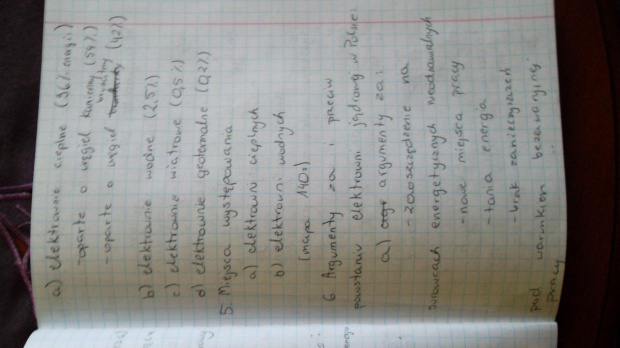 a) elektrownie cieplne (96% energii)
-oparte o węgiel kamienny (54%)
brunatny
-oparte o węgiel (42%)
b) elektrownie wodne (2,5%)
c) elektrownie wiatrowe (0,5%)
d) elektrownie geotermalne (0,2%)
5. Miejsca występowania
a) elektrowni cieplnych
b) elektrowni wodnych
(mapa 140s)
6. Argumenty za i przeciw
powstaniu elektrowni jądrowej w Polsce:
a) argumenty za:
-zaoszczędzenie na
surowcach energetycznych nieodnawialnych
-nowe miejsca pracy
-tania energia
-brak zanieczyszczeń
pod warunkiem bezawaryjnej
pracy